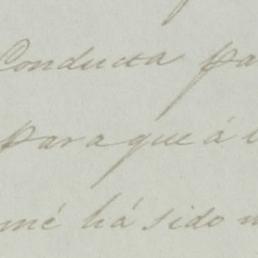 Conducta pa
para que á l
mé há sido